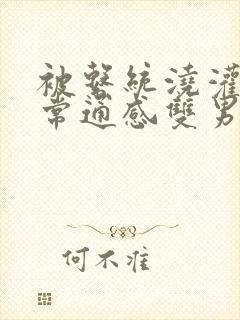 被繫統澆灌
常通感雙男
何不准